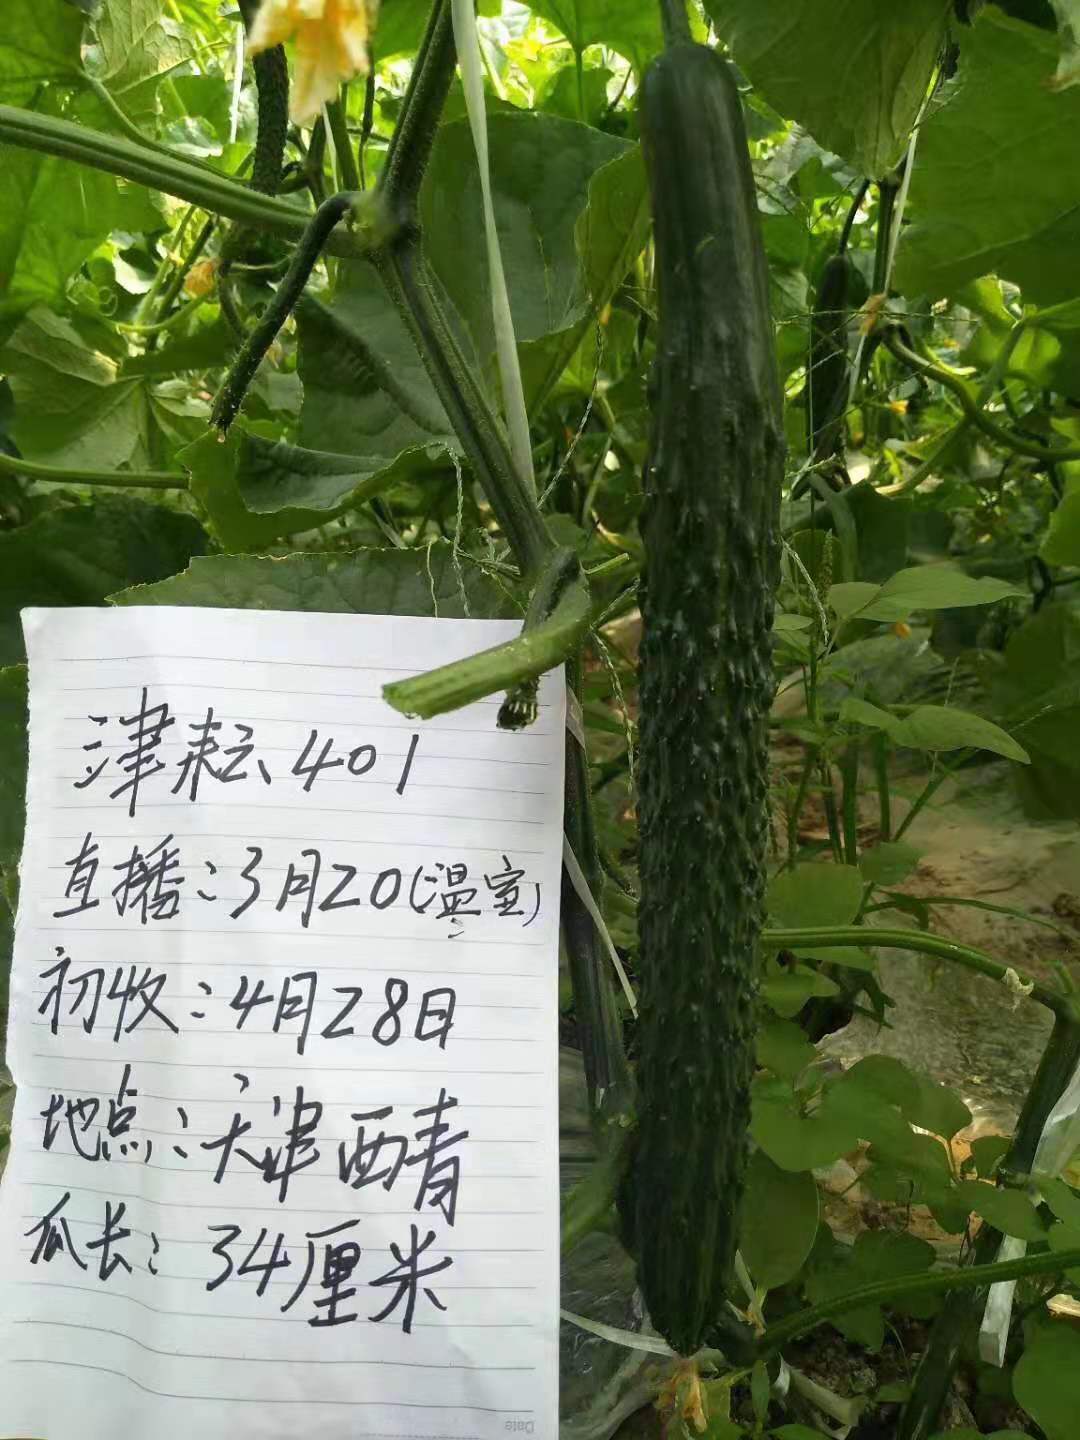 津耘401
直播：3月20（温室）
初收：4月28日
地点：天津西青
瓜长：34厘米
Date